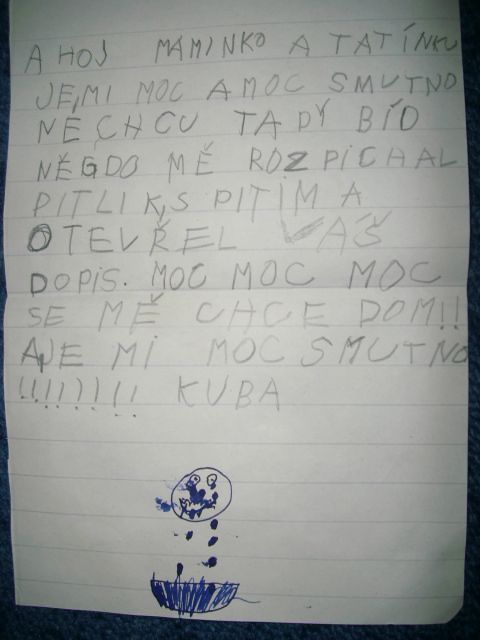 AHOJ MAMINKO A TATÍNKU
JE,MI MOC A MOC SMUTNO
NECHCU TADY BÍO
NĚGDO MĚ ROZPÍCHAL
PITLIK,S PITÍM A
OTEVŘEL VÁŠ
DOPIS. MOC MOC MOC
SE MĚ CHCE DOM!!
A,JE MI MOC SMUTNO
!!!!!!!! KUBA